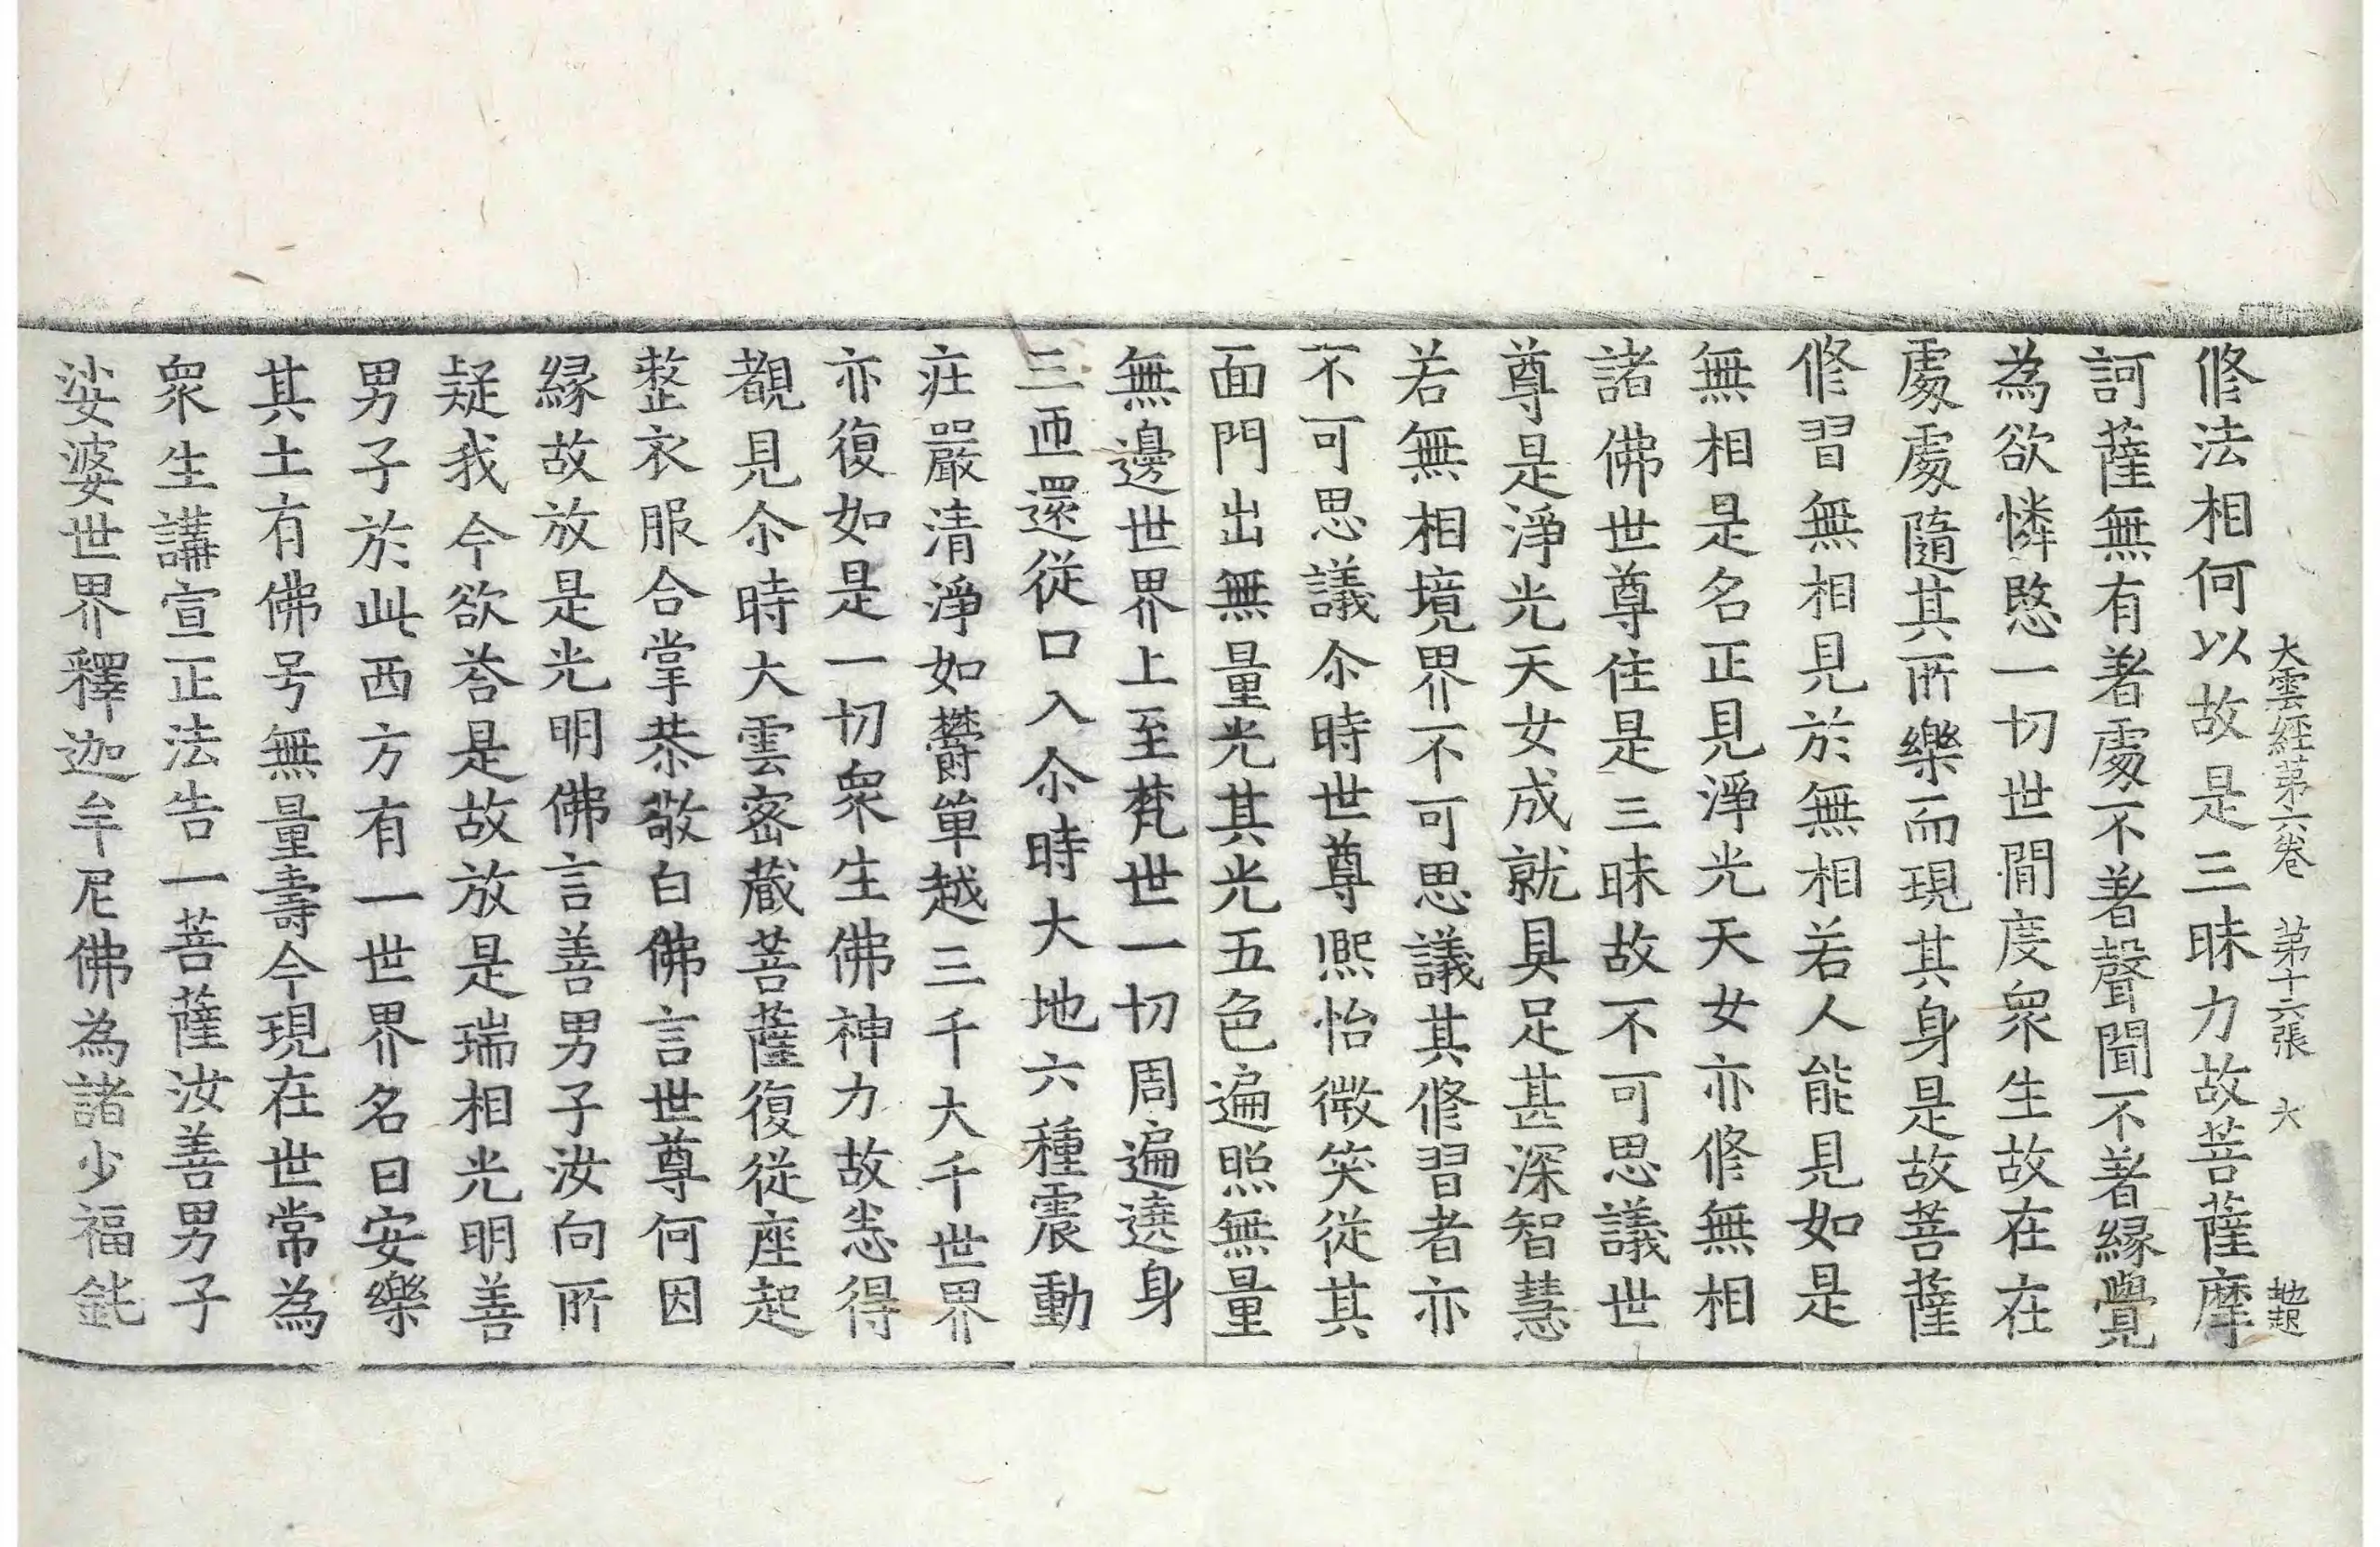 大雲經第六卷 第十六張 大 地起
修法相何以故是三昧力故菩薩摩
訶薩無有著處不著聲聞不著縁覺
為欲憐愍一切世間度衆生故在在
處處隨其所樂而現其身是故菩薩
修習無相見於無相若人能見如是
無相是名正見淨光天女亦修無相
諸佛世尊住是三昧故不可思議世
尊是淨光天女成就具足甚深智慧
若無相境界不可思議其修習者亦
不可思議尒時世尊熙怡微笑從其
面門出無量光其光五色遍照無量
無邊世界上至梵世一切周遍遶身
三匝還從口入尒時大地六種震動
莊嚴清淨如欝單越三千大千世界
亦復如是一切衆生佛神力故悉得
覩見尒時大雲密藏菩薩復從座起
整衣服合掌恭敬白佛言世尊何因
縁故放是光明佛言善男子汝向所
疑我今欲荅是故放是瑞相光明善
男子於此西方有一世界名曰安樂
其土有佛号無量壽今現在世常為
衆生講宣正法告一菩薩汝善男子
娑婆世界釋迦牟尼佛為諸少福鈍